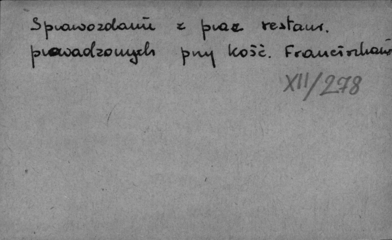 Sprawozdanie z prac restaur.
prowadzonych przy kość. Franciszkanów
XII/278